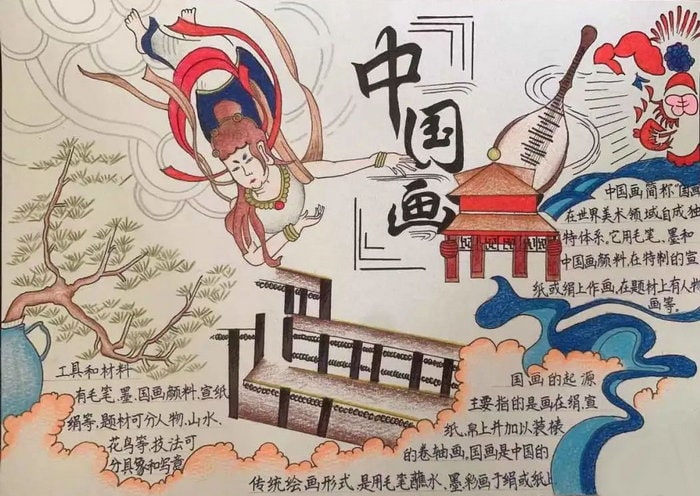 中国画
中国画简称"国画
在世界美术领域自成独
特体系,它用毛笔、墨和
中国画颜料在特制的宣
纸或绢上作画,在题材上有人物
画等。
工具和材料
有毛笔、墨、国画颜料、宣纸
绢等,题材可分人物、山水、
花鸟等,技法可
分具象和写意
国画的起源
主要指的是画在绢、宣
纸、帛上并加以装裱
的卷轴画,国画是中国的
传统绘画形式,是用毛笔蘸水、墨、彩画于绢或纸上